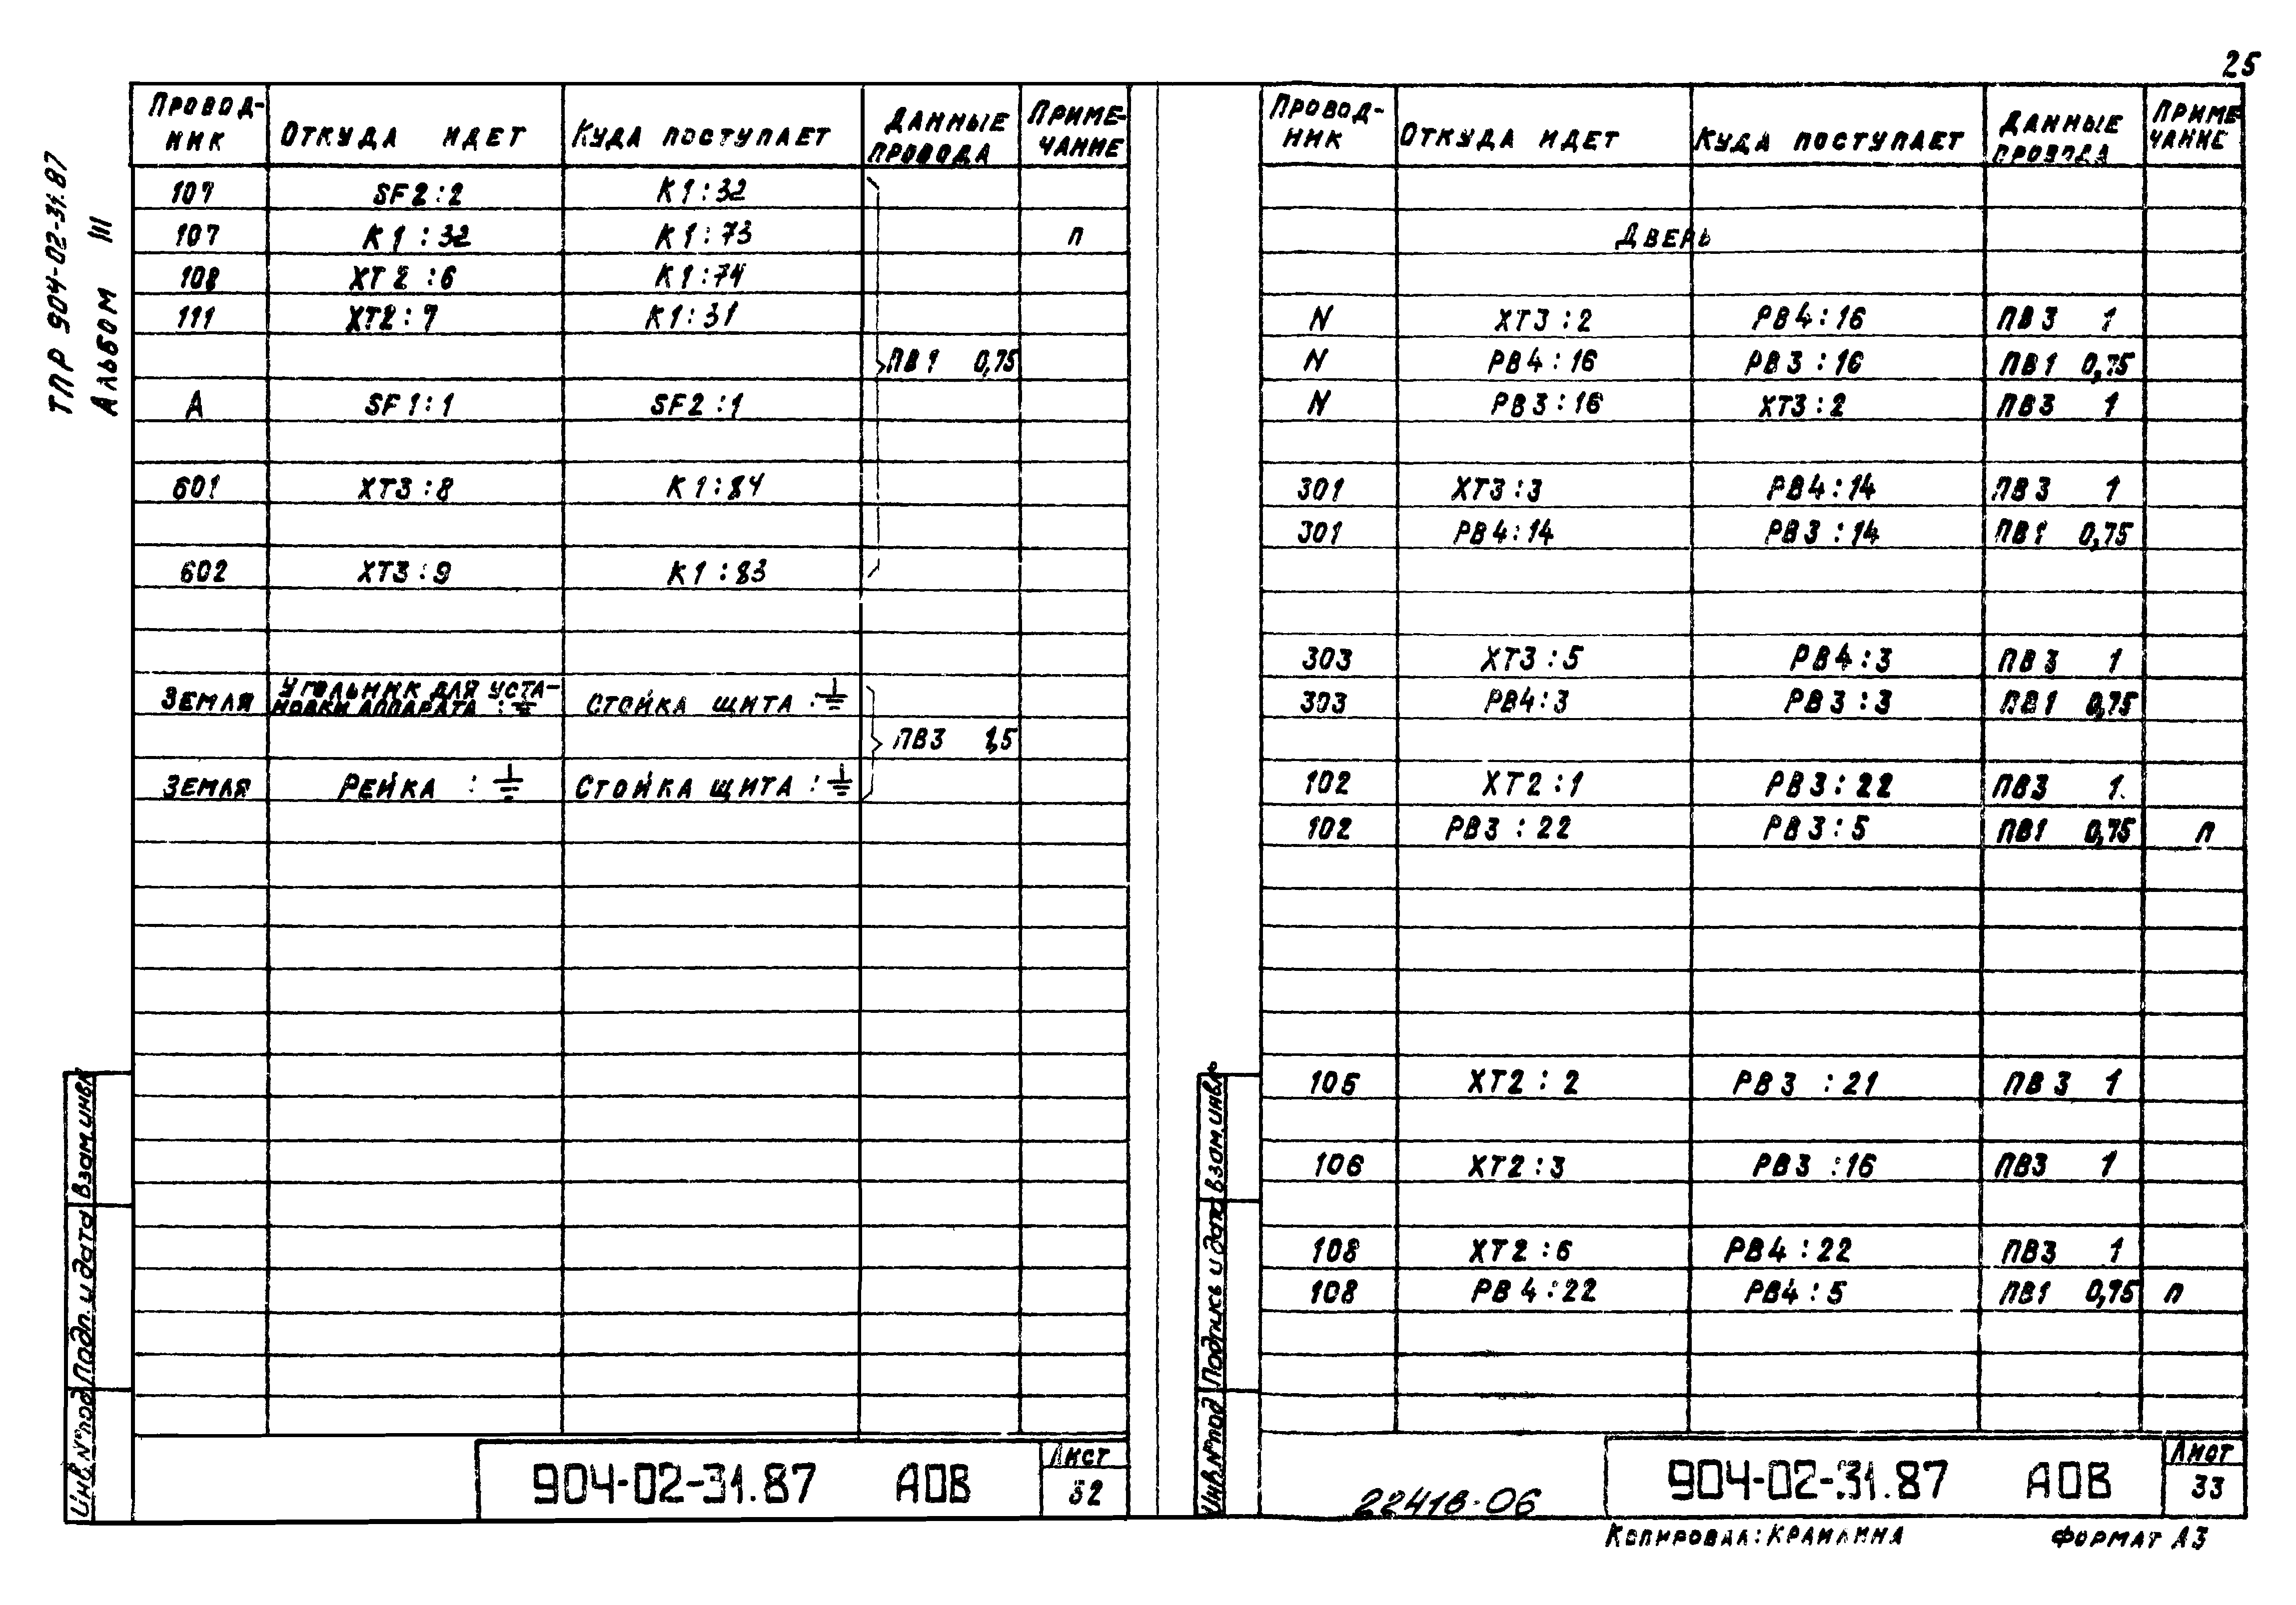 25
ТПР 904-02-31.87
Альбом III
Провод-ник Откуда идет Куда поступает Данные провода Приме-чание
107 SF2:2 К1:32
107 К1:32 К1:73 п
108 XT2:6 К1:74
111 XT2:7 К1:31
ПВ1 0,75
А SF1:1 SF2:1
601 XT3:8 К1:84
602 XT3:9 К1:83
Земля Угольник для уста-новки аппарата :⏚ Стойка щита :⏚
ПВ3 1,5
Земля Рейка :⏚ Стойка щита :⏚
Инв.№под Подп. и дата Взам.инв.№
904-02-31.87 АОВ
Лист
32
Провод-ник Откуда идет Куда поступает Данные провода Приме-чание
Дверь
N XT3:2 РВ4:16 ПВ3 1
N РВ4:16 РВ3:16 ПВ1 0,75
N РВ3:16 XT3:2 ПВ3 1
301 XT3:3 РВ4:14 ПВ3 1
301 РВ4:14 РВ3:14 ПВ1 0,75
303 XT3:5 РВ4:3 ПВ3 1
303 РВ4:3 РВ3:3 ПВ1 0,75
102 XT2:1 РВ3:22 ПВ3 1
102 РВ3:22 РВ3:5 ПВ1 0,75 п
105 XT2:2 РВ3:21 ПВ3 1
106 XT2:3 РВ3:16 ПВ3 1
108 XT2:6 РВ4:22 ПВ3 1
108 РВ4:22 РВ4:5 ПВ1 0,75 п
Инв.№под Подпись и дата Взам.инв.№
22418-06
904-02-31.87 АОВ
Лист
33
Копировал: Краилина
Формат А3